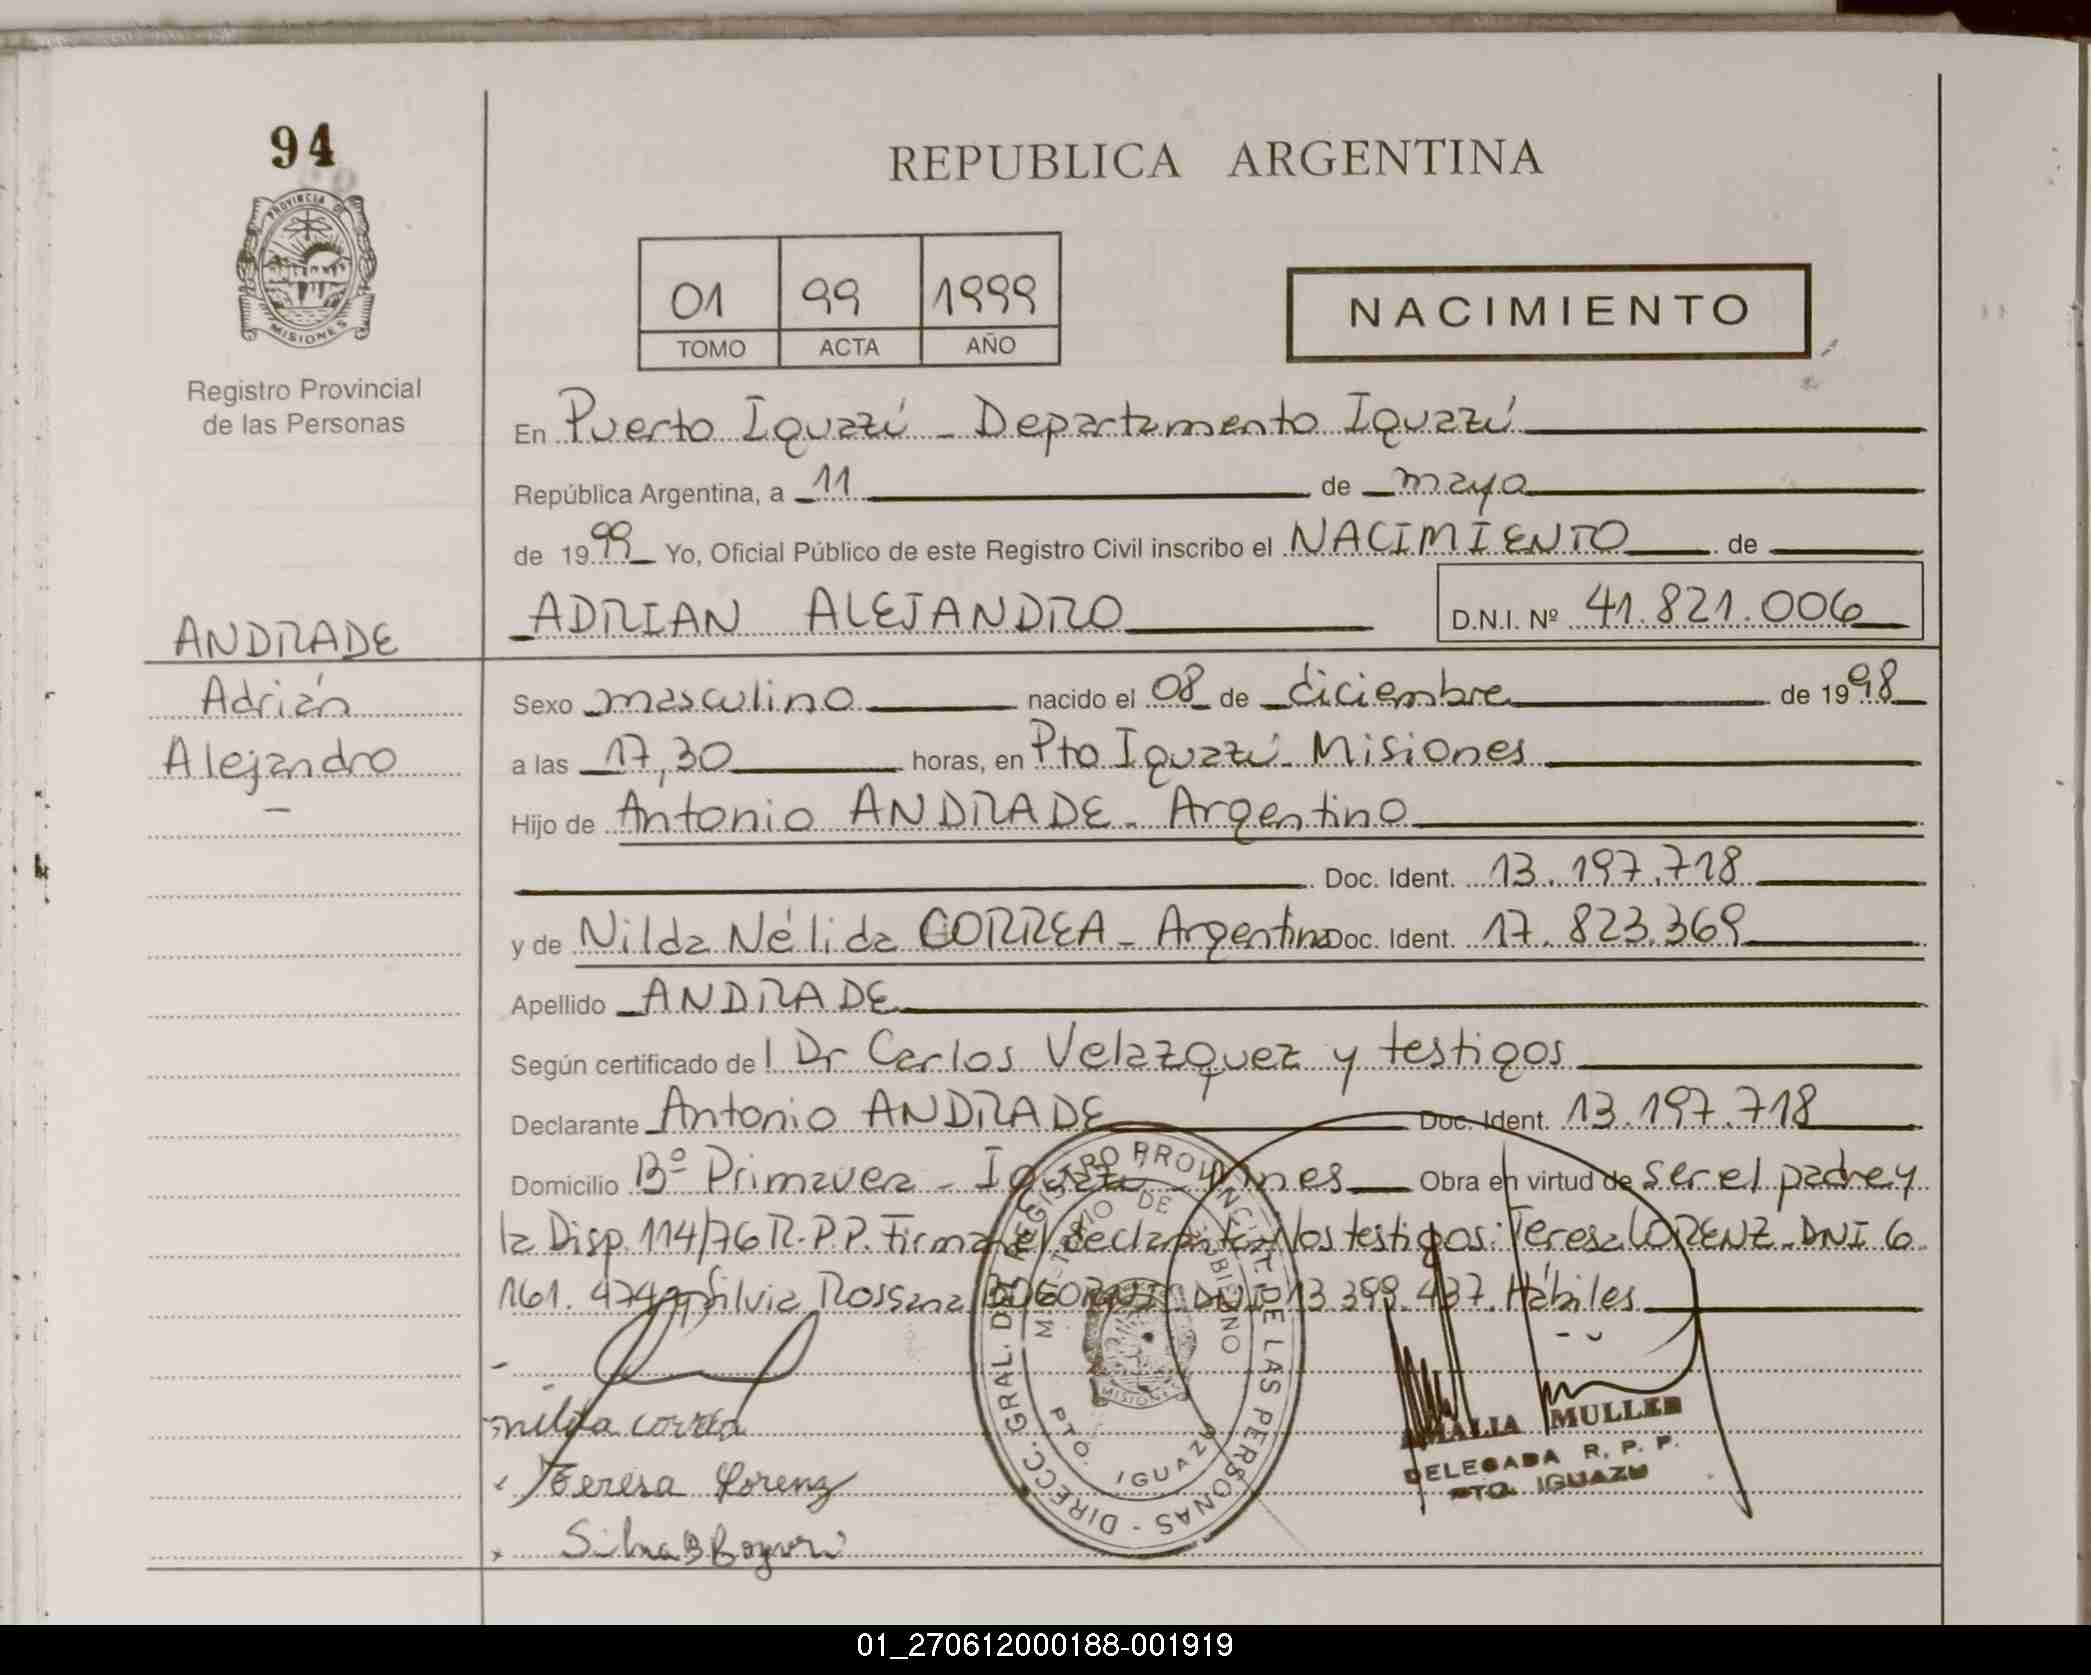 94
PROVINCIA DE
MISIONES
Registro Provincial
de las Personas
REPUBLICA ARGENTINA
01 99 1999
TOMO ACTA AÑO
NACIMIENTO
En Puerto Iguazú - Departamento Iguazú
República Argentina, a 11 de mayo
de 1999 Yo, Oficial Público de este Registro Civil inscribo el NACIMIENTO de
ADRIAN ALEJANDRO D.N.I. Nº 41.821.006
ANDRADE
Adrián
Alejandro
Sexo masculino nacido el 08 de diciembre de 1998
a las 17,30 horas, en Pto Iguazú - Misiones
Hijo de Antonio ANDRADE - Argentino
Doc. Ident. 13.197.718
y de Nilda Nélida CORREA - Argentina Doc. Ident. 17.823.369
Apellido ANDRADE
Según certificado de l Dr Carlos Velazquez y testigos
Declarante Antonio ANDRADE Doc. Ident. 13.197.718
Domicilio Bº Primavera - Iguazú - Mnes Obra en virtud de ser el padre y
la Disp. 114/76 R.P.P. Firman el declarante y los testigos: Teresa LORENZ - DNI 6
161. 474 y Silvia Rossana DNI 13 399.437. Hábiles
nilda correa
Teresa Lorenz
DIRECC. GRAL. DEL REGISTRO PROVINCIAL DE LAS PERSONAS
MINISTERIO DE GOBIERNO
MISIONES
PTO. IGUAZU
AMALIA MULLER
DELEGADA R. P. P.
PTO. IGUAZU
01_270612000188-001919